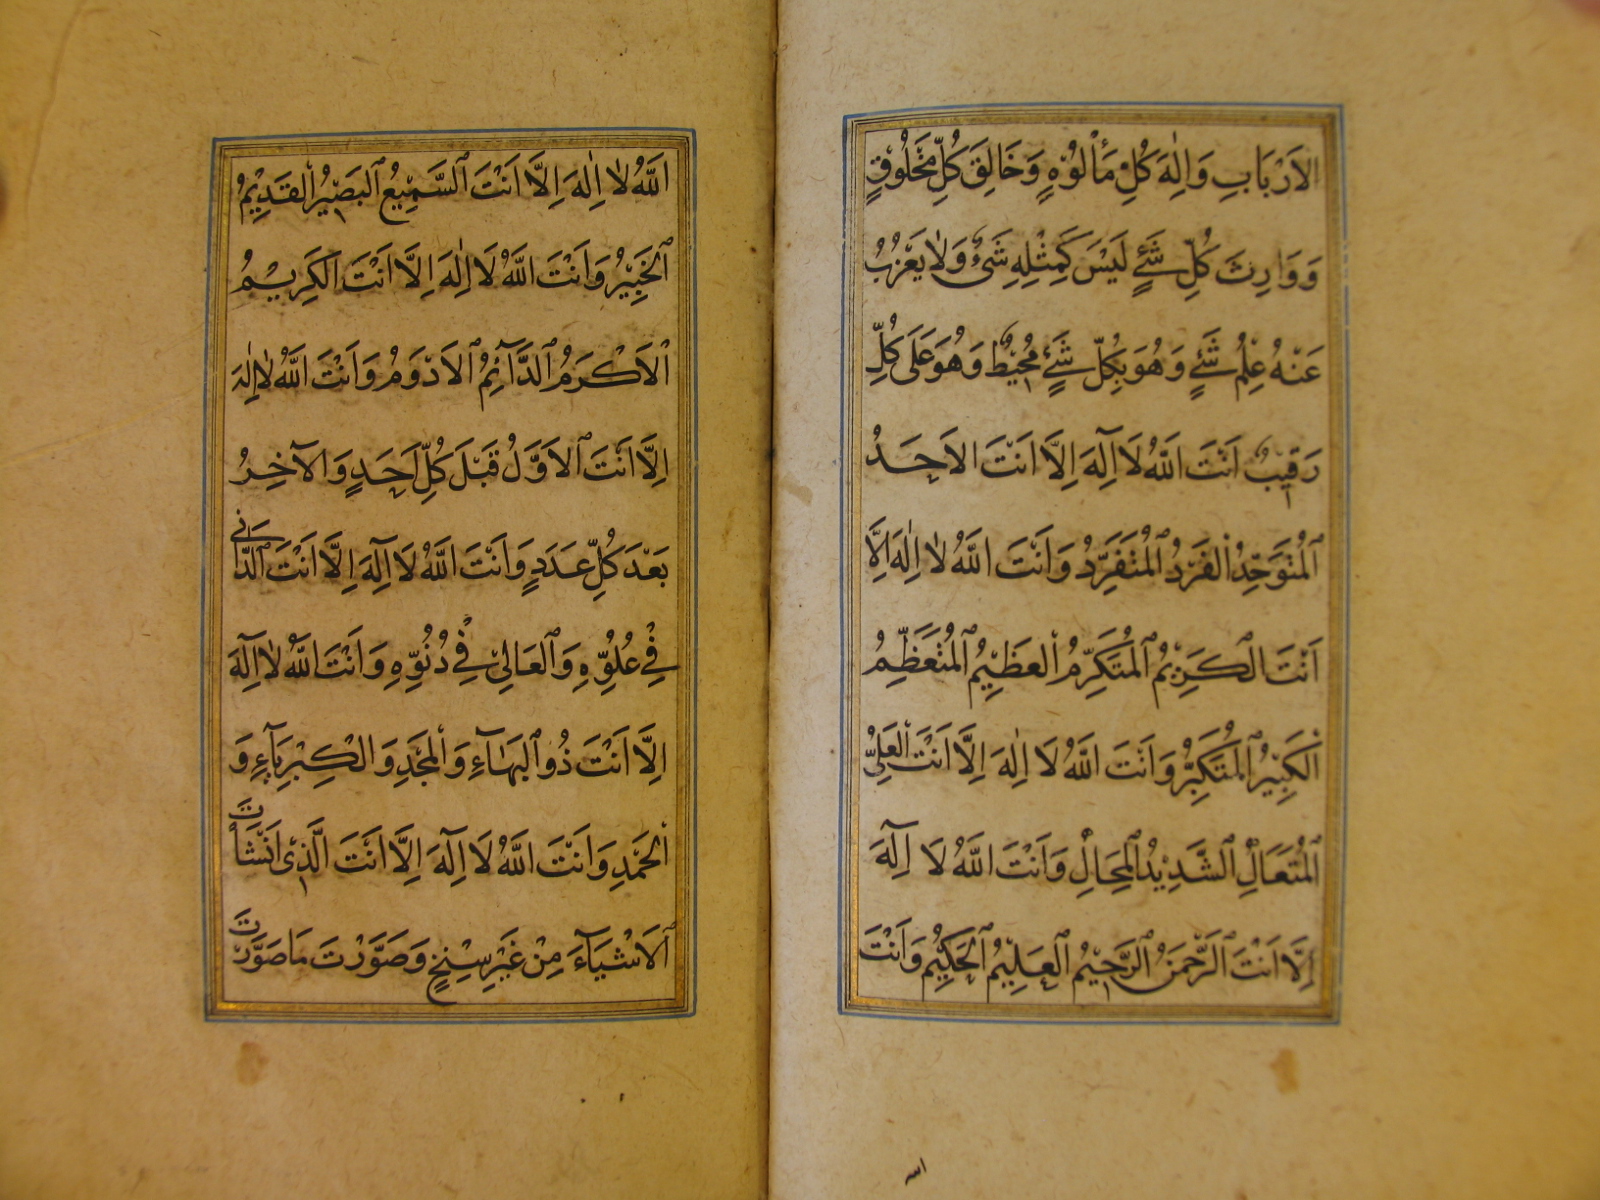 الاَرْبَابِ وَاِلٰهَ كُلِّ مَأْلُوْهٍ وَخَالِقَ كُلِّ مَخْلُوْقٍ
وَوَارِثَ كُلِّ شَیْءٍ لَيْسَ كَمِثْلِهِ شَیْءٌ وَلَا يَعْزُبُ
عَنْهُ عِلْمُ شَیْءٍ وَهُوَ بِكُلِّ شَیْءٍ مُحِيْطٌ وَهُوَ عَلَى كُلِّ
رَقِيْبٌ اَنْتَ اللّٰهُ لَا اِلٰهَ اِلَّا اَنْتَ الاَحَدُ
الْمُتَوَحِّدُ الْفَرْدُ الْمُتَفَرِّدُ وَاَنْتَ اللّٰهُ لَا اِلٰهَ اِلَّا
اَنْتَ الْكَرِيْمُ الْمُتَكَرِّمُ الْعَظِيْمُ الْمُتَعَظِّمُ
الْكَبِيْرُ الْمُتَكَبِّرُ وَاَنْتَ اللّٰهُ لَا اِلٰهَ اِلَّا اَنْتَ الْعَلِیُّ
الْمُتَعَالِ الشَّدِيْدُ الْمِحَالِ وَاَنْتَ اللّٰهُ لَا اِلٰهَ
اِلَّا اَنْتَ الرَّحْمٰنُ الرَّحِيْمُ الْعَلِيْمُ الْحَكِيْمُ وَاَنْتَ
الله
اللّٰهُ لَا اِلٰهَ اِلَّا اَنْتَ السَّمِيْعُ الْبَصِيْرُ الْقَدِيْمُ
الْخَبِيْرُ وَاَنْتَ اللّٰهُ لَا اِلٰهَ اِلَّا اَنْتَ الْكَرِيْمُ
الْاَكْرَمُ الدَّآئِمُ الْاَدْوَمُ وَاَنْتَ اللّٰهُ لَا اِلٰهَ
اِلَّا اَنْتَ الْاَوَّلُ قَبْلَ كُلِّ اَحَدٍ وَالآخِرُ
بَعْدَ كُلِّ عَدَدٍ وَاَنْتَ اللّٰهُ لَا اِلٰهَ اِلَّا اَنْتَ الدَّانِی
فِیْ عُلُوِّهِ وَالْعَالِیْ فِیْ دُنُوِّهِ وَاَنْتَ اللّٰهُ لَا اِلٰهَ
اِلَّا اَنْتَ ذُو الْبَهَآءِ وَالْمَجْدِ وَالْكِبْرِيَآءِ وَ
الْحَمْدِ وَاَنْتَ اللّٰهُ لَا اِلٰهَ اِلَّا اَنْتَ الَّذِیْ اَنْشَأْتَ
الْاَشْيَآءَ مِنْ غَيْرِ سِنْخٍ وَصَوَّرْتَ مَا صَوَّرْتَ